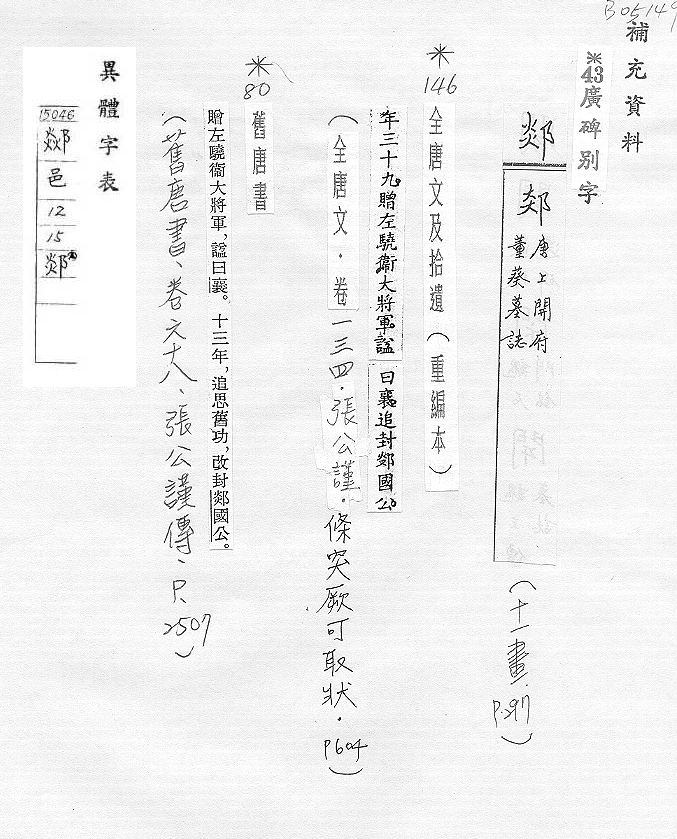 B05149
補充資料
※43廣碑別字
郯
郯
唐上開府
董葵墓誌
(十一畫.P.297)
※146
全唐文及拾遺(重編本)
年三十九贈左驍衛大將軍謚曰襄追封郯國公
(全唐文.卷一三四.張公謹.條突厥可取狀.P604)
※80
舊唐書
贈左驍衛大將軍,謚曰襄。十三年,追思舊功,改封郯國公。
(舊唐書、卷六十八、張公謹傳、P.2507)
異體字表
15046
郯
邑
12
15